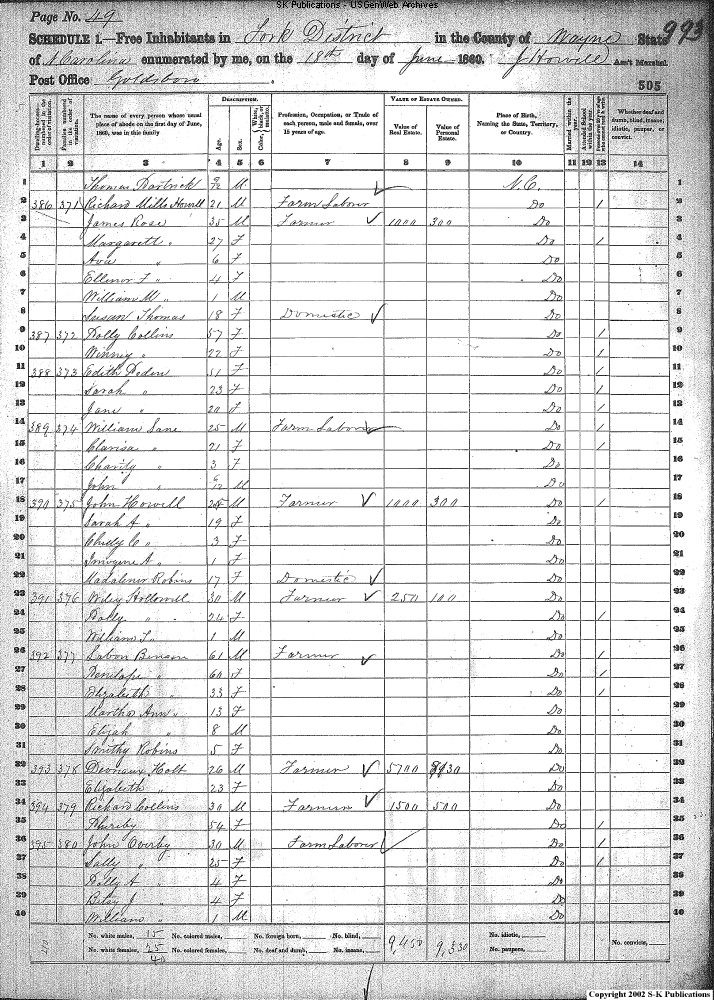 SK Publications - USGenWeb Archives
Page No. 49
993
SCHEDULE 1.—Free Inhabitants in Fork District in the County of Wayne State
of N Carolina enumerated by me, on the 18th day of June 1860. J Howell Ass't Marshal.
Post Office Goldsboro.
505
DESCRIPTION. VALUE OF ESTATE OWNED.
Dwelling-houses—numbered in the order of visitation. Families numbered in the order of visitation. The name of every person whose usual place of abode on the first day of June, 1860, was in this family Age. Sex. Color, White, black, or mulatto. Profession, Occupation, or Trade of each person, male and female, over 15 years of age. Value of Real Estate. Value of Personal Estate. Place of Birth, Naming the State, Territory, or Country. Married within the year. Attended School within the year. Whether deaf and dumb, blind, insane, idiotic, pauper, or convict.
1 2 3 4 5 6 7 8 9 10 11 12 13 14
1 Thomas 9/12 M N.C. 1
2 386 371 Richard Mills Howell 21 M Farm Laborer Do / 2
3 James Rose 35 M Farmer 1000 300 Do 3
4 Margarett " 27 F Do / 4
5 Ava " 6 F Do 5
6 Ellenor F " 4 F Do 6
7 William M " 1 M Do 7
8 Susan Thomas 18 F Domestic Do 8
9 387 372 Dolly Collins 57 F Do / 9
10 Winney " 22 F Do / 10
11 388 373 Edith 51 F Do / 11
12 Sarah " 23 F Do / 12
13 Jane " 20 F Do / 13
14 389 374 William Sane 25 M Farm Laborer Do / 14
15 Clarisa " 21 F Do / 15
16 Charity " 3 F Do 16
17 John " M Do 17
18 390 375 John Howell M Farmer 1000 300 Do / 18
19 Sarah A " 19 F Do 19
20 C " 3 F Do 20
21 Imogene A " 1 F Do 21
22 Robins 17 F Domestic Do 22
23 391 376 Wiley Hollowell 30 M Farmer 250 100 Do 23
24 Dolly " 24 F Do / 24
25 William L " 1 M Do 25
26 392 377 Labon Benson 61 M Farmer Do / 26
27 Penelope " 60 F Do / 27
28 Elizabeth " 33 F Do / 28
29 Martha Ann " 13 F Do 29
30 Elijah " 8 M Do 30
31 Smithy Robins 5 F Do 31
32 393 378 Holt 26 M Farmer 5700 Do 32
33 Elizabeth " 23 F Do 33
34 394 379 Richard Collins 30 M Farmer 1500 500 Do 34
35 54 F Do / 35
36 395 380 John Overby 30 M Farm Laborer Do / 36
37 Sally " 25 F Do / 37
38 Dolly A " 4 F Do 38
39 Betsy J " 4 F Do 39
40 William " 1 M Do 40
No. white males, 15 No. colored males, No. foreign born, No. blind, No. idiotic,
No. white females, 25 No. colored females, No. deaf and dumb, No. insane, 9,450 9,330 No. paupers, No. convicts,
40
Copyright 2002 S-K Publications